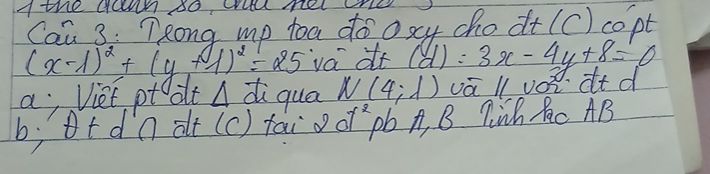 Câu 3: Trong mp toa đô Oxy cho đt (C) có pt
(x-1)² + (y+1)² = 25 và đt (d): 3x - 4y + 8 = 0
a; Viết pt đt Δ đi qua N (4;1) và // với đt d
b; đt d ∩ đt (C) tại 2 đ² pb A, B Tính AB